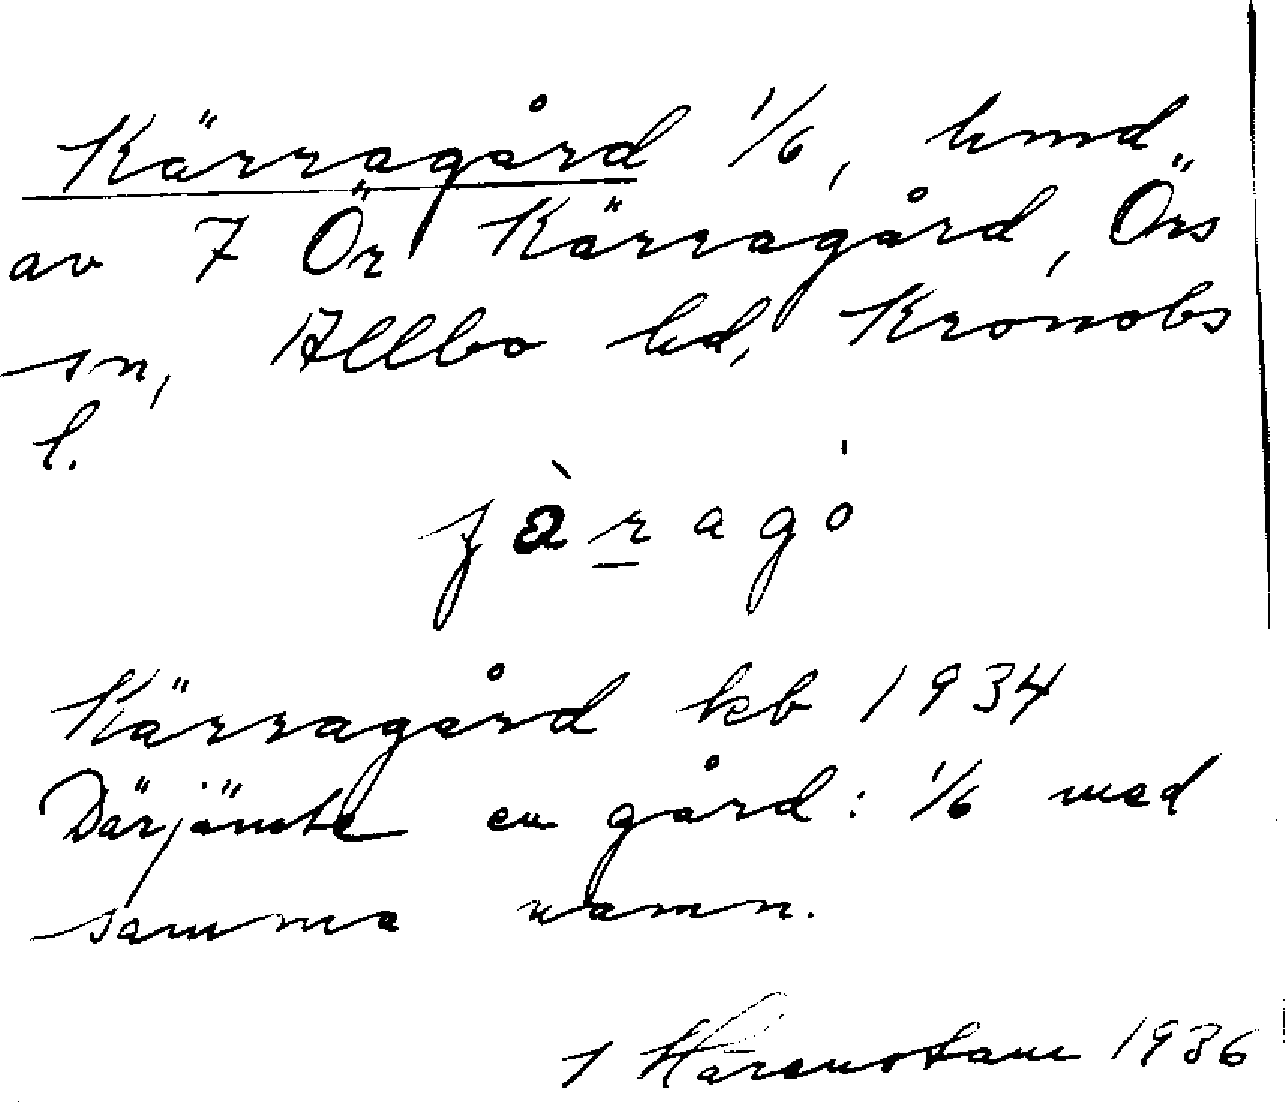 Kärragård 1/6, hmd
av 7 Ör Kärragård, Örs
sn, Allbo hd, Kronobs
l.
Kärragård kb 1934
Därjämte en gård: 1/6 med
samma namn.
1936